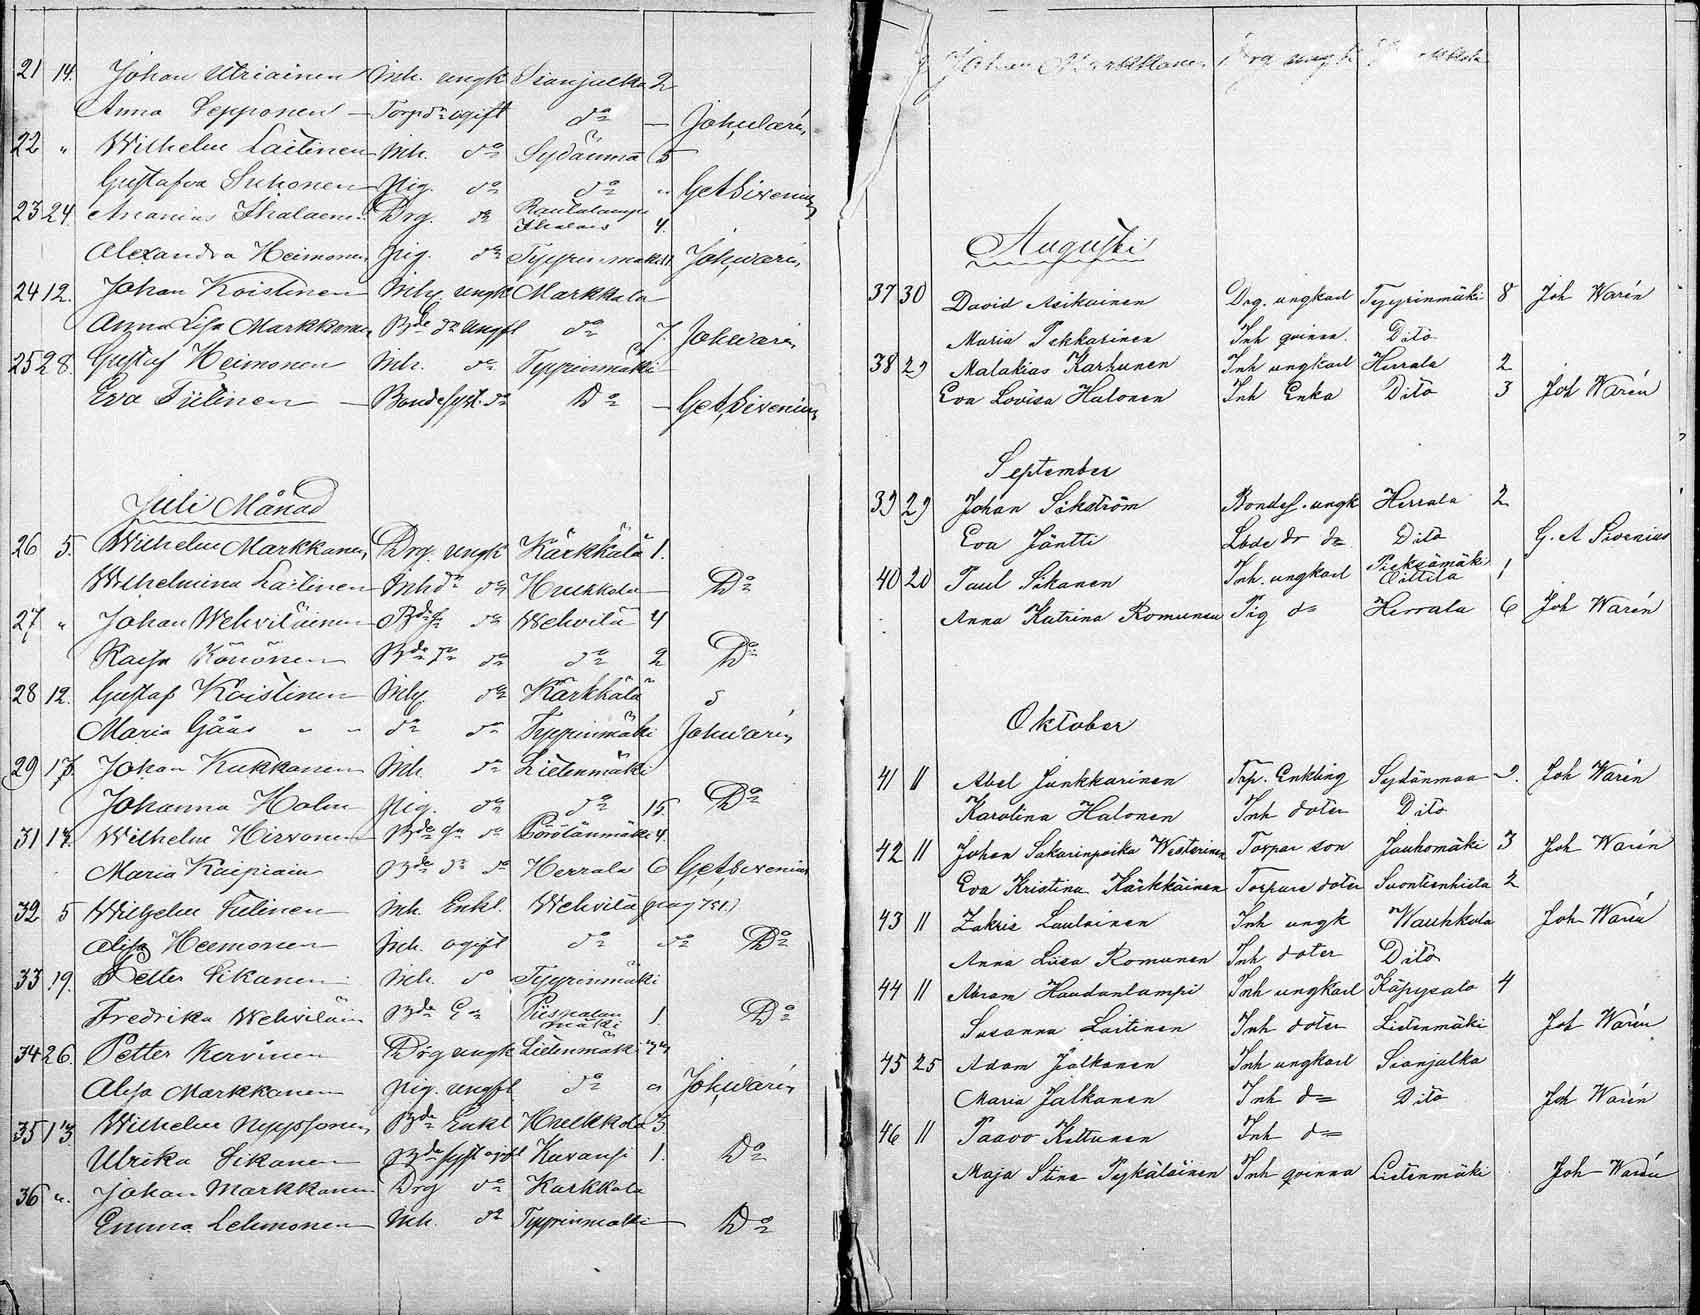 21 14. Johan Utriainen Inh. ungk Sianjalka 2
Anna Sepponen — Torp dr ogift do — Joh. Warén
22 " Wilhelm Laitinen Inh. do Sydänmā 5
Gustafva Suhonen Pig. do do " G. A. Sirenius
23 24. Ananias Ihalainen Drg. do Rautalampi Ihalais 4.
Alexandra Heimonen Pig. do Typpinmäki Joh. Warén
24 12. Johan Koistinen Inhy ungk Markkala
Anna Lisa Markkanen Bde dr ungfl do 7. Joh Warén
25 28. Gustaf Heimonen Inh. do Typpinmäki
Eva Tiilinen — Bondesyst. do Do — G. A. Sirenius
Juli Månad
26 5. Wilhelm Markkanen Drg. ungk Kärkkälä 1.
Wilhelmina Laitinen Inh dr do Hukkala Do
27 " Johan Wehviläinen Bde s. do Wehvilä 4
Kaisa Könönen Bde dr do do 2 Do
28 12. Gustaf Koistinen Inhy. do Kärkkälä 5
Maria Gåås " " do do Typpinmäki Joh Warén
29 17. Johan Kukkanen Inh. do Lietenmäki
Johanna Holm Pig. do do 15. Do
31 17. Wilhelm Hirvonen Bde sn do Pörölänmäki 4.
Maria Kaipiain Bde dr do Herrala 6 G. A. Sirenius
32 5 Wilhelm Tiilinen Inh. Enkl. Wehvilä
Alisa Heimonen Inh. ogift do do Do
33 19. Petter Sikanen Inh. do Typpinmäki
Fredrika Wehviläin Bde Piespalan mäki 1. Do
34 26. Petter Kervinen Drg ungk Lietenmäki
Alisa Markkanen Pig. ungfl do Joh Warén
35 13 Wilhelm Nyyssonen Bde Enkl Hukkala 3
Ulrika Sikanen Bde syst ogift Kuvansi 1. Do
36 ". Johan Markkanen Drg do Karkkala
Emma Lehmonen Inh. do Typpinmäki Do
Johan Markkanen Drg ungk
Augusti
37 30 David Asikainen Drg. ungkarl Typpinmäki 8 Joh Warén
Maria Pekkarinen Inh qvinna. Dito
38 29 Malakias Karhunen Inh ungkarl Herrala 2
Eva Lovisa Halonen Inh Enka Dito 3 Joh Warén
September
39 29 Johan Sikström Bondes. ungk Herrala 2
Eva Jäntti Lbde dr do Dito G. A Sirenius
40 20 Paul Sikanen Inh. ungkarl Pieksämäki 1
Anna Katrina Romunen Pig do Herrala 6 Joh Warén
Oktober
41 11 Abel Junkkarinen Trp. Enkling Sydänmaa 2. Joh Warén
Karolina Halonen Inh doter Dito
42 11 Johan Sakarinpoika Westerinen Torpar son Jauhomäki 3 Joh Warén
Eva Kristina Kärkkäinen Torpare doter Suontienhieta 2
43 11 Zakris Laulainen Inh ungk Wauhkola Joh Warén
Anna Lisa Romunen Inh doter Dito
44 11 Abram Haudanlampi Inh ungkarl Käpysalo 4
Susanna Laitinen Inh doter Lietenmäki Joh Warén
45 25 Adam Jalkanen Inh ungkarl Sianjalka
Maria Jalkanen Inh do Dito Joh Warén
46 11 Paavo Kettunen Inh do
Maja Stina Pykäläinen Inh qvinna Lietenmäki Joh Warén